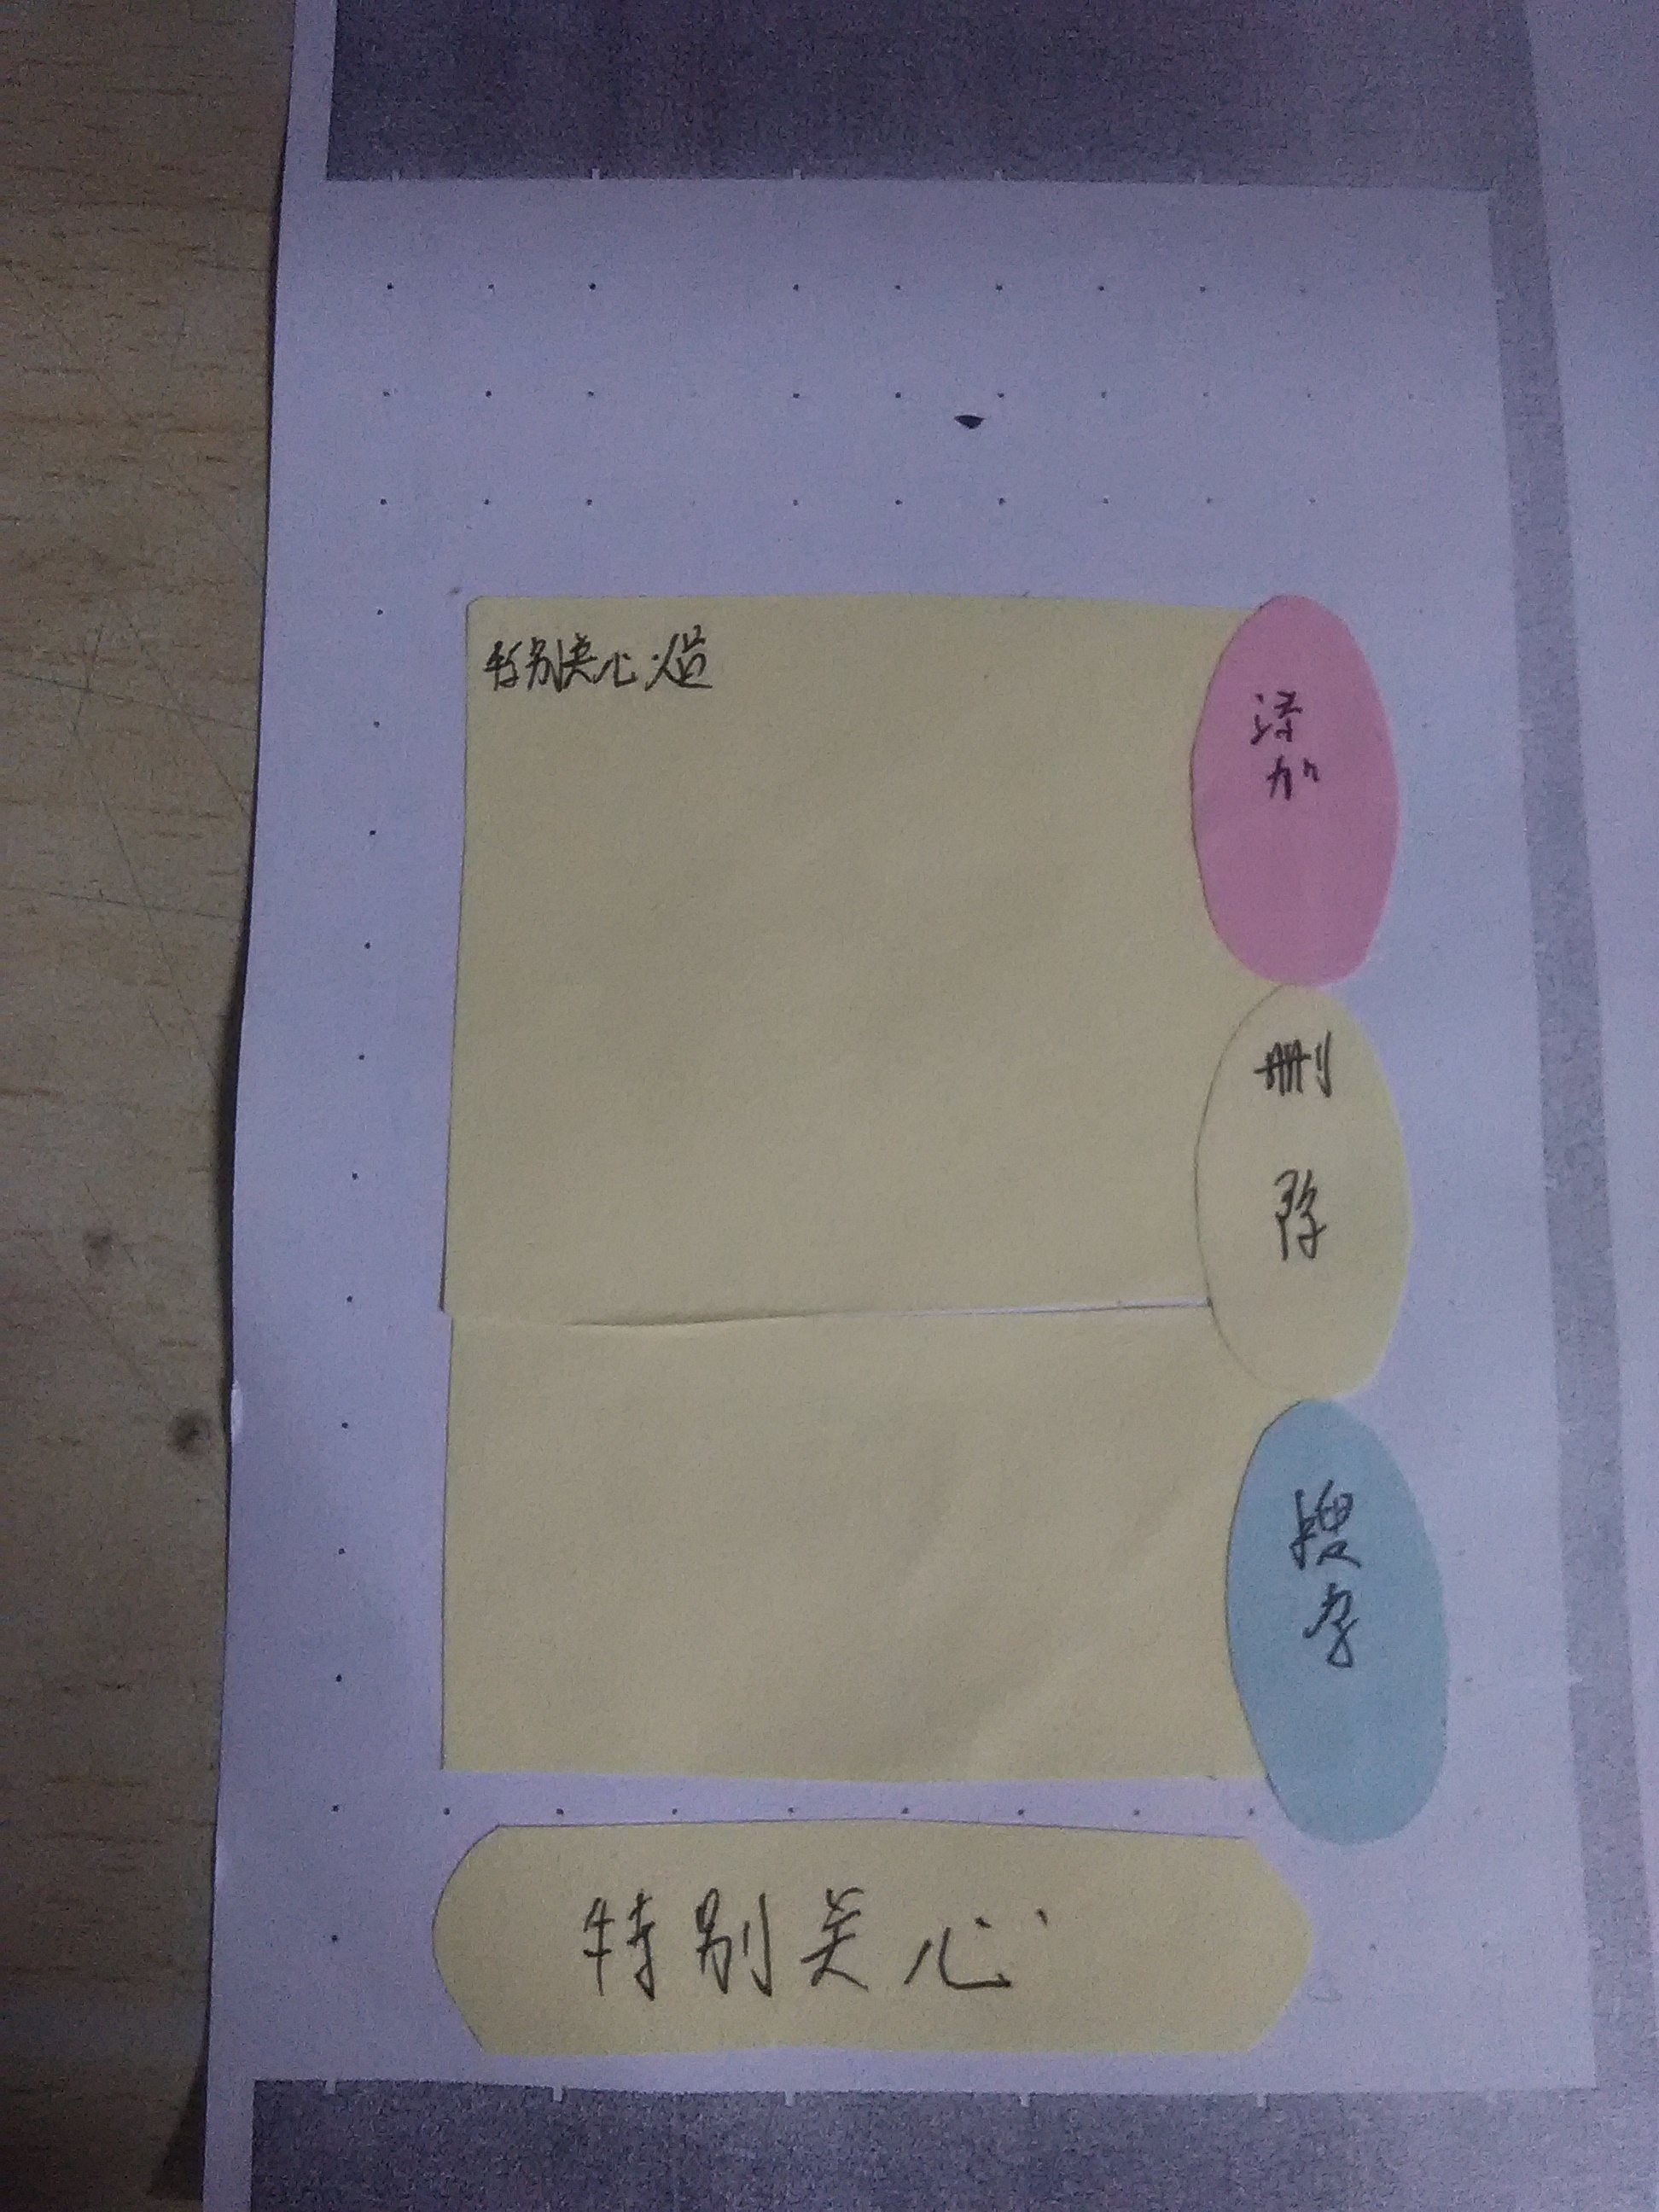 特别关心
添
加
删
除
搜
索
特别关心